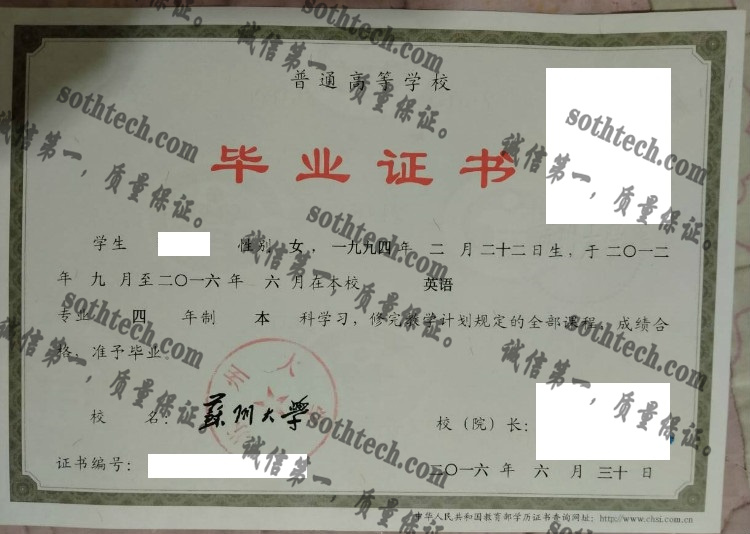 普通高等学校
毕业证书
学生 性别 女，一九九四年 二 月二十二日生，于二〇一二
年 九 月至二〇一六年 六 月在本校 英语
专业 四 年制 本 科学习，修完教学计划规定的全部课程，成绩合
格，准予毕业
校 名： 蘇州大學
校（院）长：
证书编号：
二〇一六年 六 月 三十日
中华人民共和国教育部学历证书查询网址：http://www.chsi.com.cn
sothtech.com
诚信第一，质量保证。
sothtech.com
诚信第一，质量保证。
sothtech.com
诚信第一，质量保证。
sothtech.com
诚信第一，质量保证。
sothtech.com
诚信第一，质量保证。
sothtech.com
诚信第一，质量保证。
sothtech.com
诚信第一，质量保证。